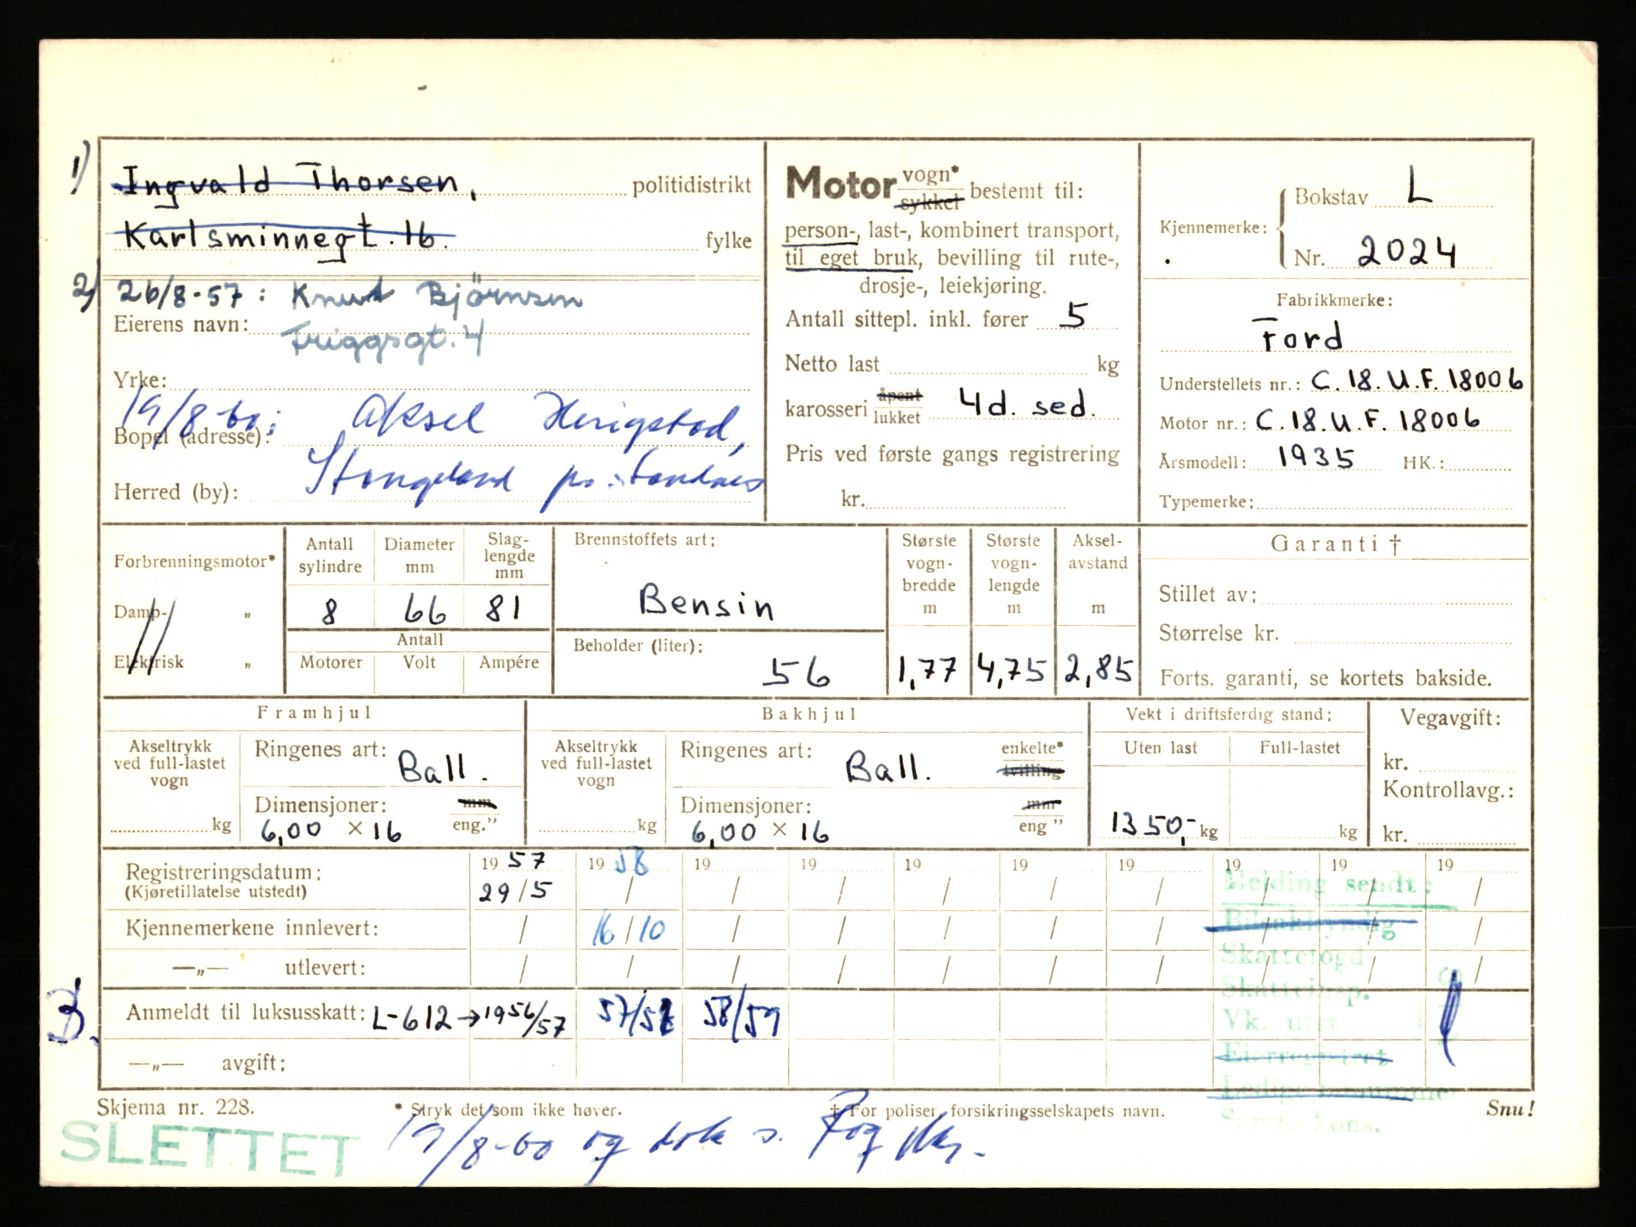 1) Ingvald Thorsen, politidistrikt
Karlsminnegt. 16. fylke
2) 26/8-57: Knut Bjørnsen
Eierens navn: Friggsgt. 4
Yrke:
19/8-60: Aksel Herigstad,
Bopel (adresse):
Herred (by): Stangeland pr. Sandnes
Motor vogn* sykkel bestemt til:
person-, last-, kombinert transport,
til eget bruk, bevilling til rute-,
drosje-, leiekjøring.
Antall sittepl. inkl. fører 5
Netto last kg
karosseri åpent lukket 4d. sed.
Pris ved første gangs registrering
kr.
Kjennemerke: Bokstav L
Nr. 2024
Fabrikkmerke:
Ford
Understellets nr.: C.18.U.F. 18006
Motor nr.: C.18.U.F. 18006
Årsmodell: 1935 HK.:
Typemerke:
Forbrenningsmotor*
Damp- „
Elektrisk „
Antall sylindre Diameter mm Slag-lengde mm
8 66 81
Antall
Motorer Volt Ampére
Brennstoffets art:
Bensin
Beholder (liter):
56
Største vogn-bredde m Største vogn-lengde m Aksel-avstand m
1,77 4,75 2,85
Garanti †
Stillet av:
Størrelse kr.
Forts. garanti, se kortets bakside.
Framhjul
Akseltrykk ved full-lastet vogn
kg
Ringenes art: Ball.
Dimensjoner: mm
6,00 × 16 eng.”
Bakhjul
Akseltrykk ved full-lastet vogn
kg
Ringenes art: Ball. enkelte* tvilling
Dimensjoner: mm
6,00 × 16 eng”
Vekt i driftsferdig stand:
Uten last Full-lastet
1350,- kg kg
Vegavgift:
kr.
Kontrollavg.:
kr.
1957 1958 19 19 19 19 19 19 19 19
Registreringsdatum:
(Kjøretillatelse utstedt) 29/5 / / / / / / / / /
Kjennemerkene innlevert: / 16/10 / / / / / / / /
—„— utlevert: / / / / / / / / / /
3. Anmeldt til luksusskatt: L-612 → 1956/57 57/58 58/59
—„— avgift:
Melding sendt:
Bilsakkyndig
Skattefogd
Skatteinsp.
Vk.
Eierregistret
Ledige
kons.
Skjema nr. 228. * Stryk det som ikke høver. † For poliser, forsikringsselskapets navn. Snu!
SLETTET 19/8-60 og